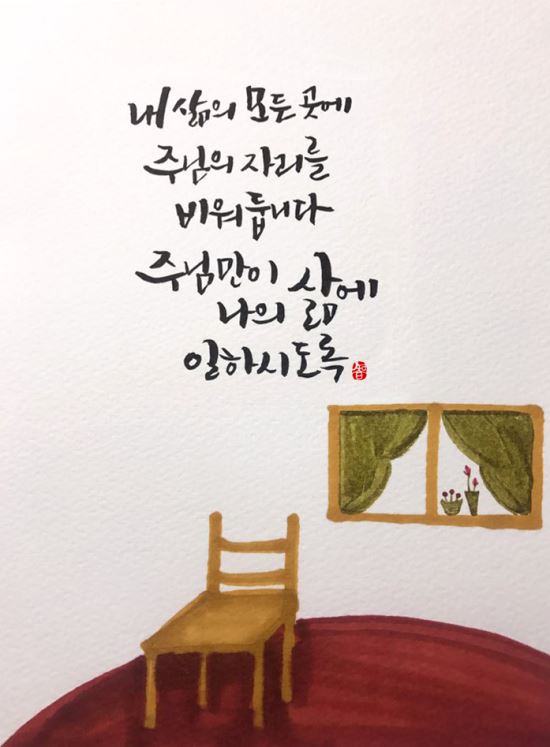 내 삶의 모든 곳에
주님의 자리를
비워둡니다
주님만이
나의 삶에
일하시도록